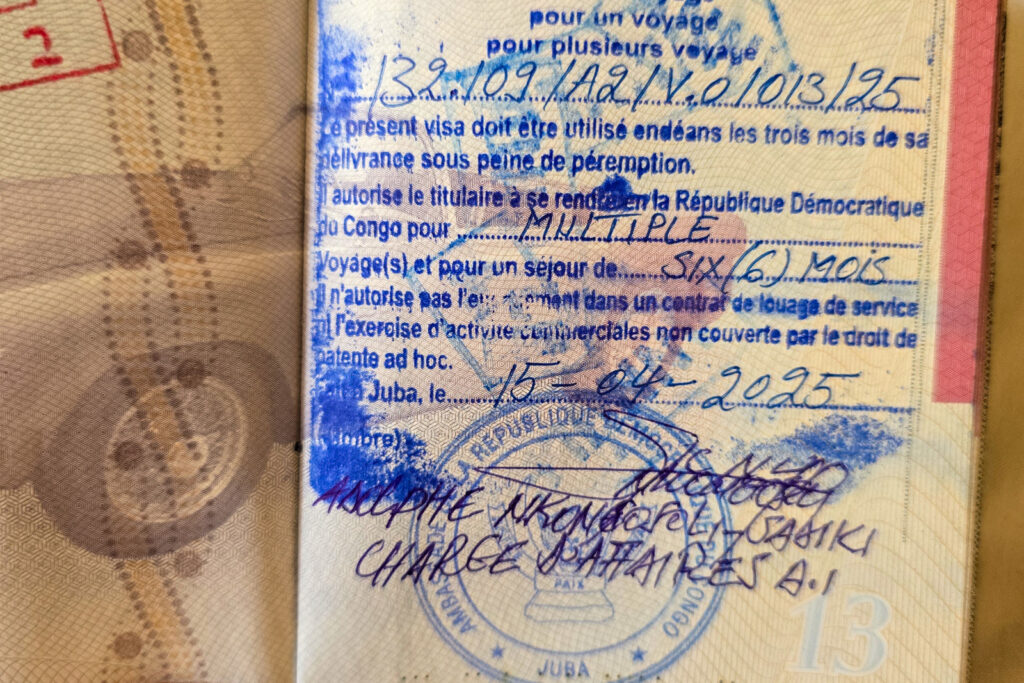 2
pour un voyage
pour plusieurs voyage
132.109/A2/V.01013/25
Le présent visa doit être utilisé endéans les trois mois de sa
délivrance sous peine de péremption.
Il autorise le titulaire à se rendre en la République Démocratique
du Congo pour MULTIPLE
Voyage(s) et pour un séjour de SIX (6) MOIS
Il n'autorise pas dans un contrat de louage de service
ni l'exercise d'activité commerciales non couverte par le droit de
patente ad hoc.
Juba, le 15-04-2025
CHARGE D'AFFAIRES A.I
LA RÉPUBLIQUE
CONGO
PAIX
JUBA
13